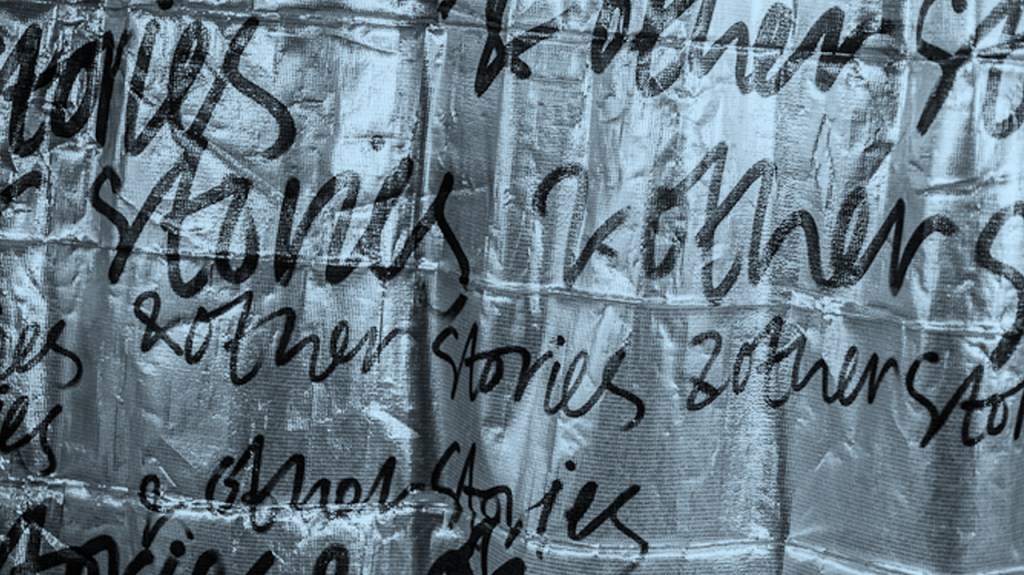 stories & other
stories & other s
ies & other stories & other stor
ies & other stories
stories &